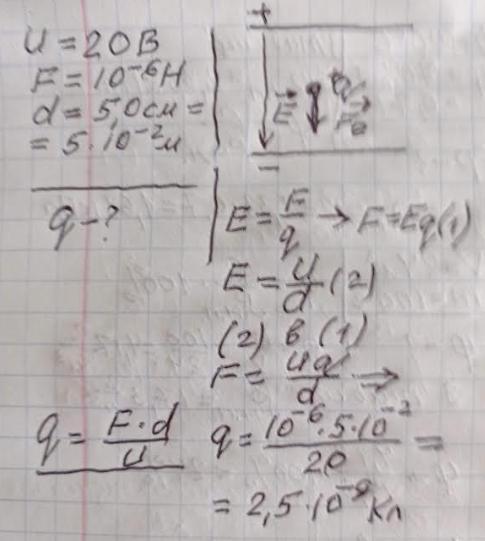 U = 20 В
F = 10⁻⁶ Н
d = 5,0 см =
= 5·10⁻² м
q - ?
+
E⃗
q
F⃗э
−
E = F/q → F = Eq (1)
E = U/d (2)
(2) в (1)
F = Uq/d ⇒
q = F·d/U
q = 10⁻⁶·5·10⁻²/20 =
= 2,5·10⁻⁹ Кл